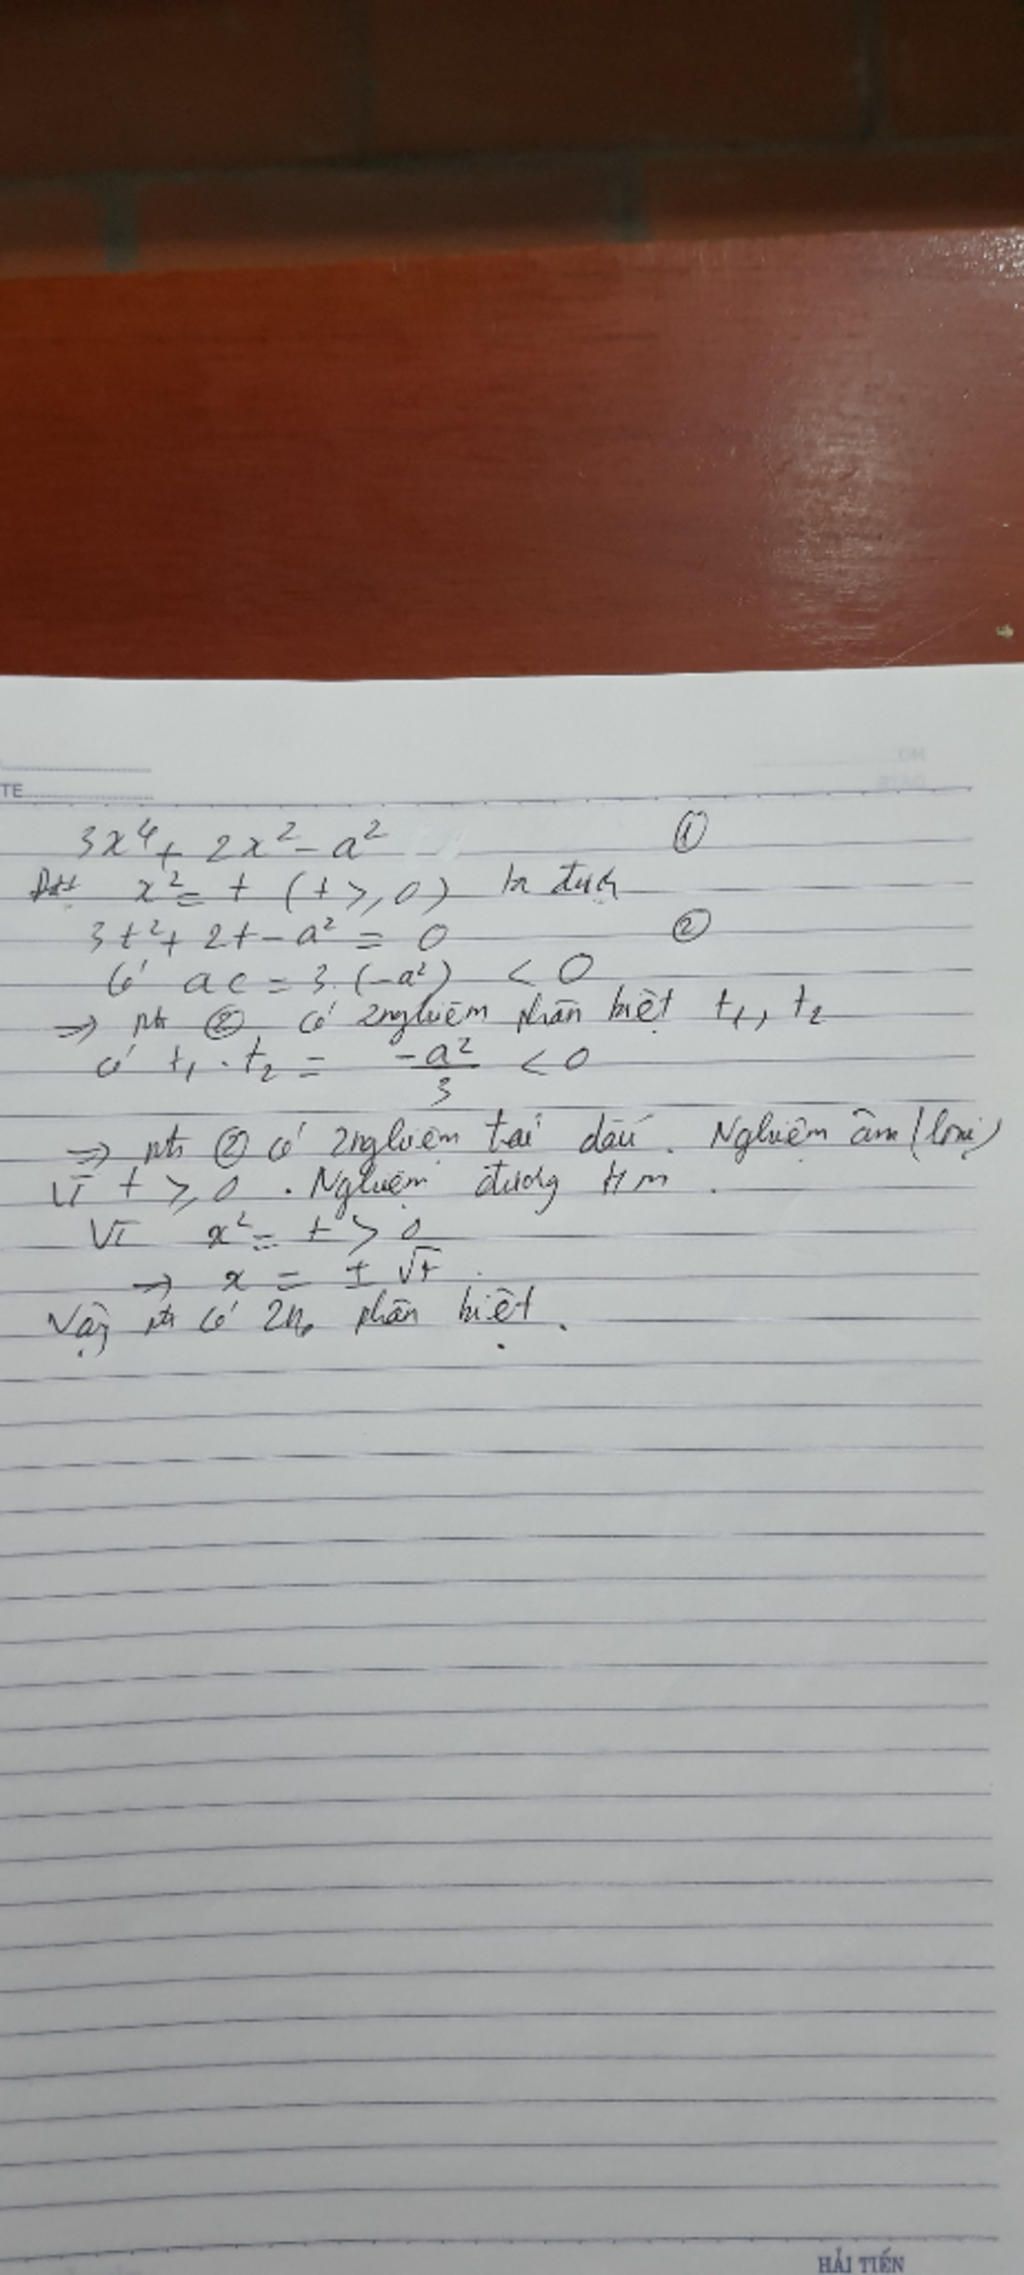 TE
NO
DATE
3x⁴ + 2x² - a² ①
Đặt x² = t (t ≥ 0) ta được
3t² + 2t - a² = 0 ②
Có ac = 3.(-a²) < 0
=> pt ② có 2 nghiệm phân biệt t₁, t₂
có t₁ . t₂ = -a²/3 < 0
=> pt ② có 2 nghiệm trái dấu. Nghiệm âm (loại)
Vì t ≥ 0. Nghiệm dương t/m.
Vì x² = t > 0
=> x = ± √t.
Vậy pt có 2n₀ phân biệt.
HẢI TIẾN